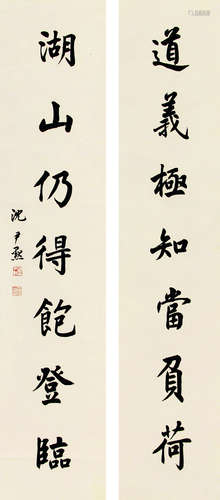 道義極知當負荷
湖山仍得飽登臨
沈尹默